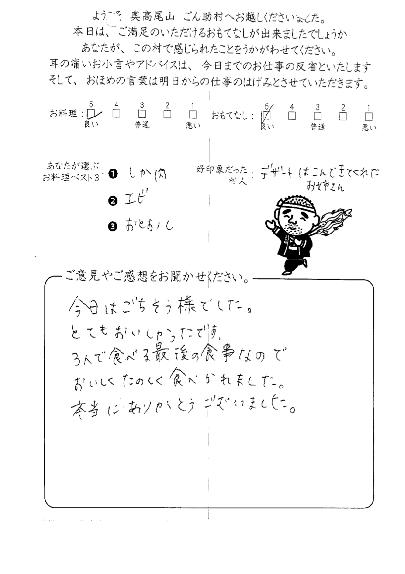 ようこそ 奥高尾山 ごん助村へお越しくださいました。
本日は、ご満足のいただけるおもてなしが出来ましたでしょうか
あなたが、この村で感じられたことをうかがわせてください。
耳の痛いお小言やアドバイスは、今日までのお仕事の反省といたします
そして、おほめの言葉は明日からの仕事のはげみとさせていただきます。
お料理: 5 4 3 2 1
良い 普通 悪い
おもてなし: 5 4 3 2 1
良い 普通 悪い
あなたが選ぶ
お料理ベスト3
1 しか肉
2 エビ
3
好印象だった
村人:
デザートはこんできてくれた
おぢさん
ご意見やご感想をお聞かせください。
今日はごちそう様でした。
とてもおいしかったです。
3人で食べる最後の食事なので
おいしくたのしく食べられました。
本当にありがとうございました。